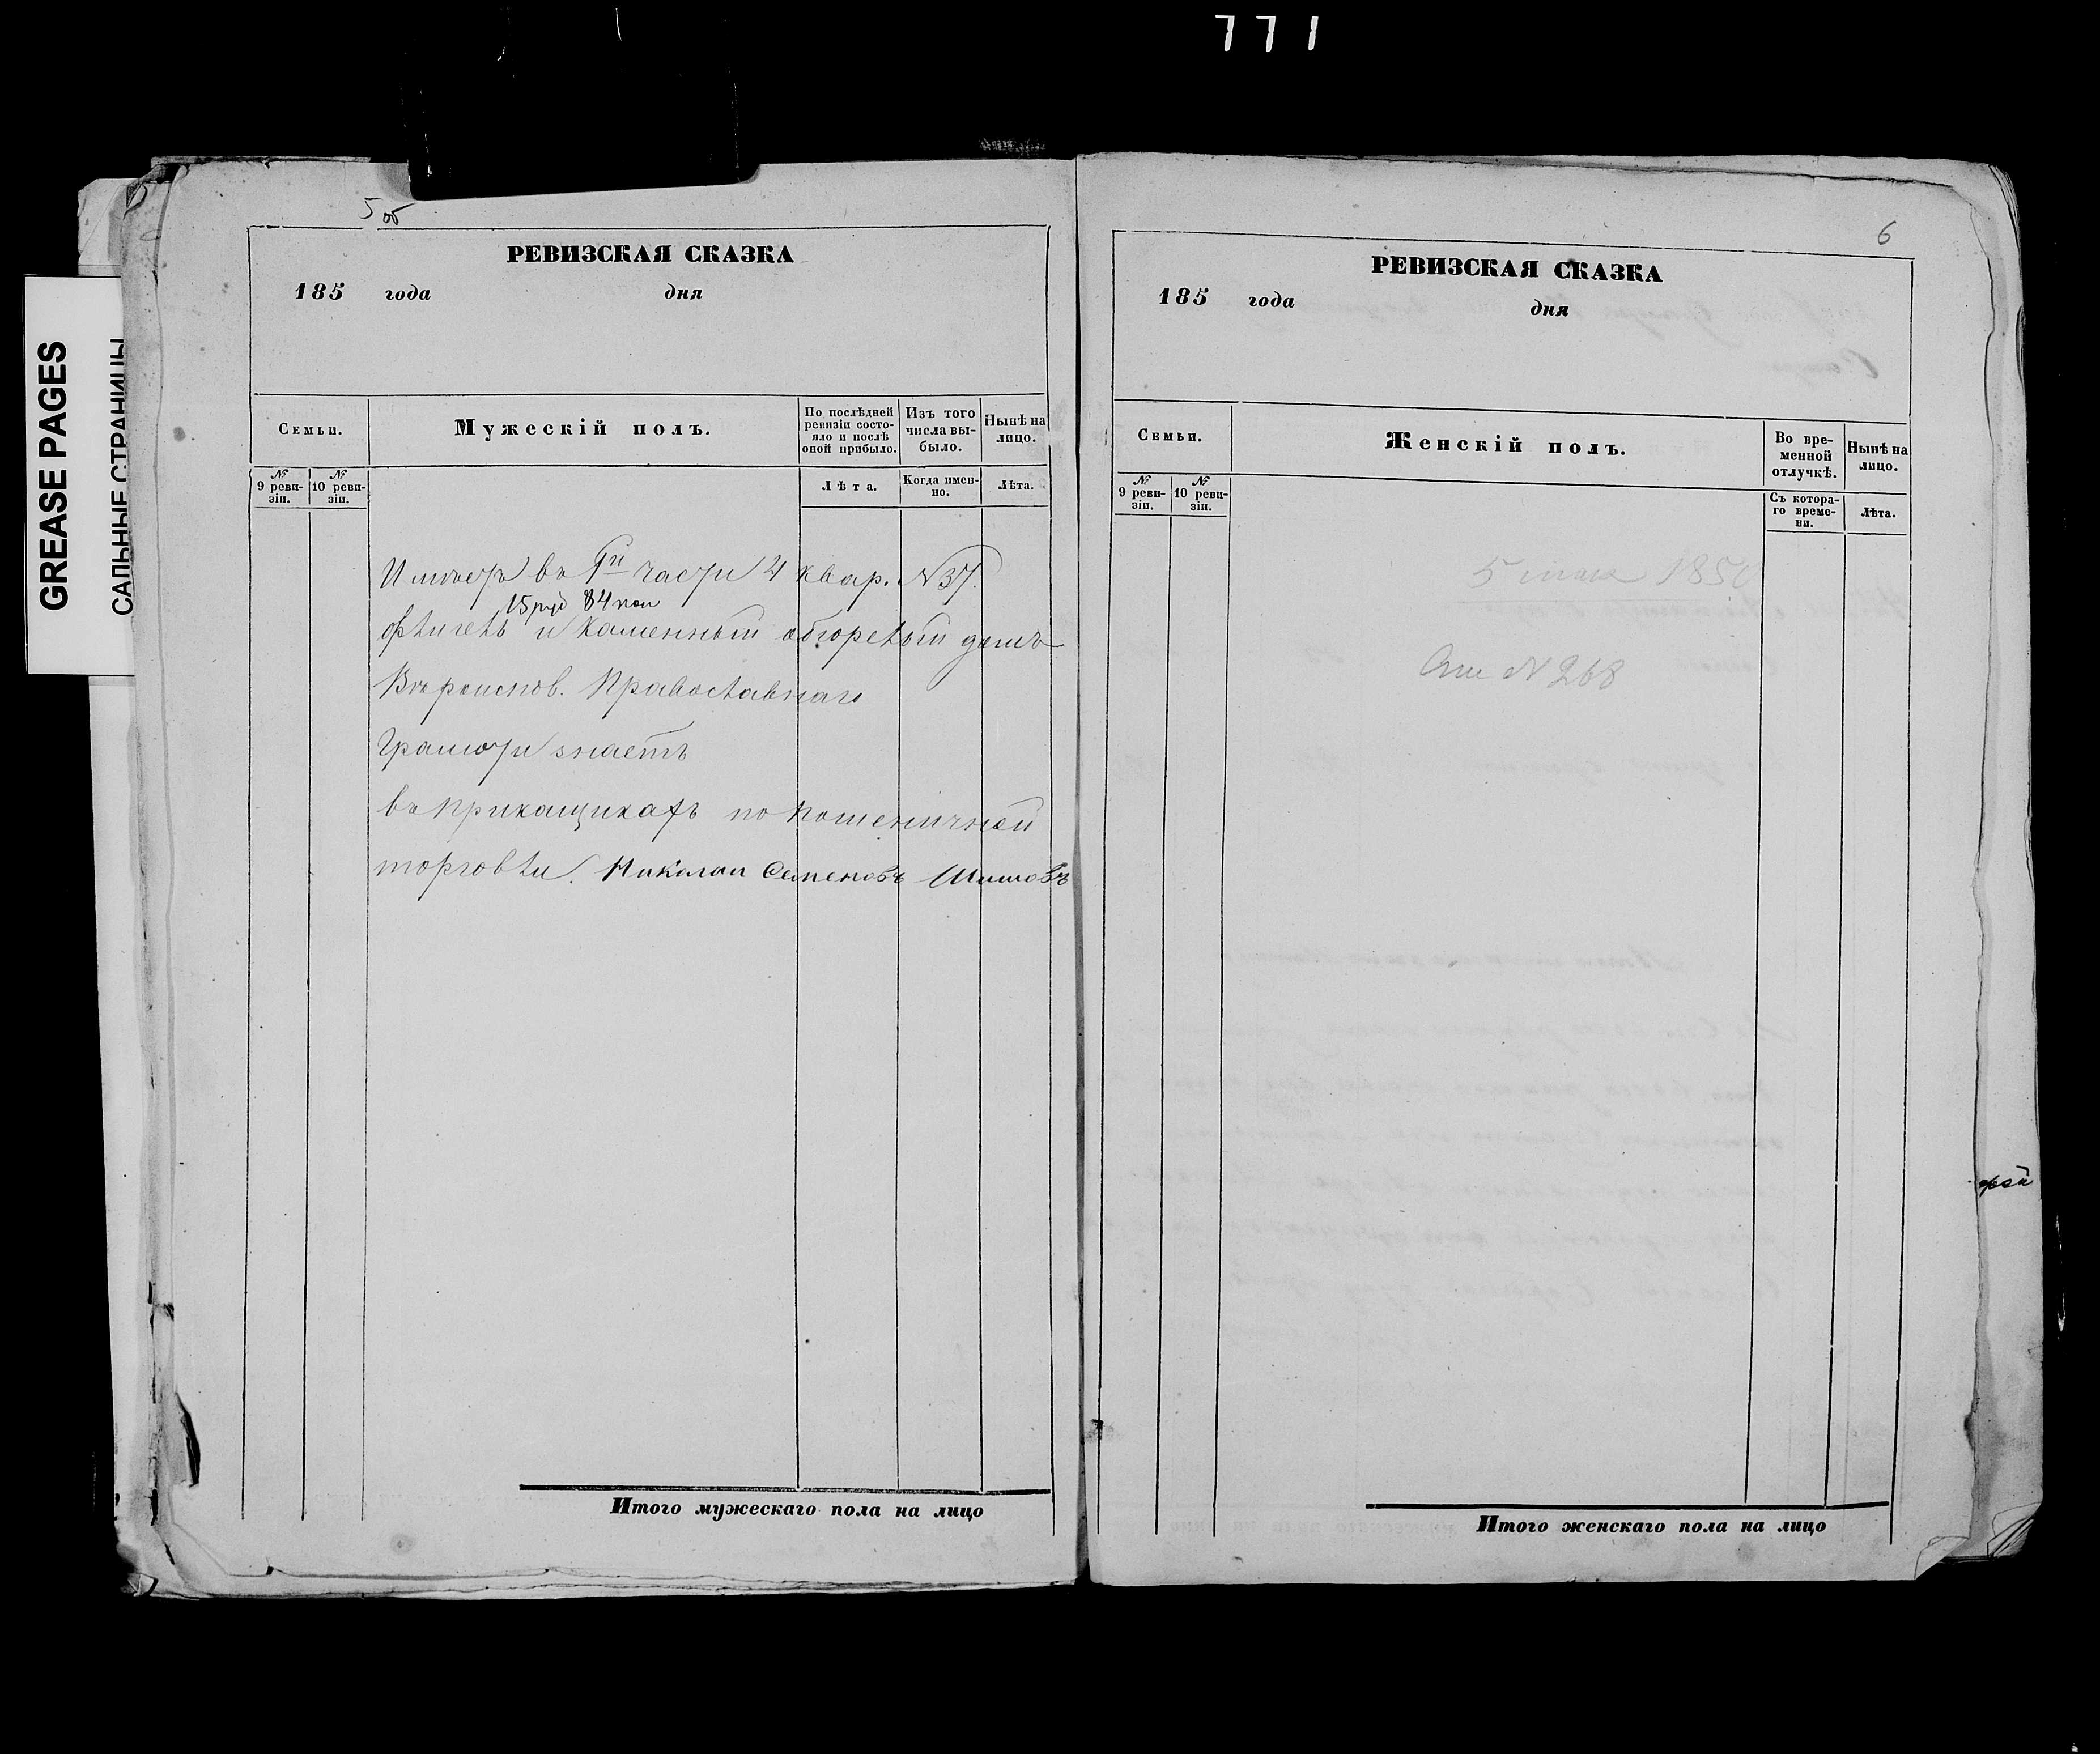 771
GREASE PAGES
САЛЬНЫЕ СТРАНИЦЫ
5 об
РЕВИЗСКАЯ СКАЗКА
185 года дня
Семьи.
Мужескій полъ.
По послѣдней ревизіи состо-
яло и послѣ
оной прибыло.
Изъ того
числа вы-
было.
Нынѣ на
лицо.
№
9 реви-
зіи.
№
10 реви-
зіи.
Лѣта.
Когда имен-
но.
Лѣта.
Имѣетъ въ 1й части 4 квар. №37.
15 руб 84 коп
флигель и каменный обгорелый домъ
Вѣроиспов. Православнаго
Грамоти знаетъ
въ прикащикахъ по пошеничной
торговли. Николай Семеновъ Шишовъ
Итого мужескаго пола на лицо
6
РЕВИЗСКАЯ СКАЗКА
185 года дня
Семьи.
Женскій полъ.
Во вре-
менной
отлучкѣ.
Нынѣ на
лицо.
№
9 реви-
зіи.
№
10 реви-
зіи.
Съ котора-
го време-
ни.
Лѣта.
5 мая 185
№ 268
Итого женскаго пола на лицо